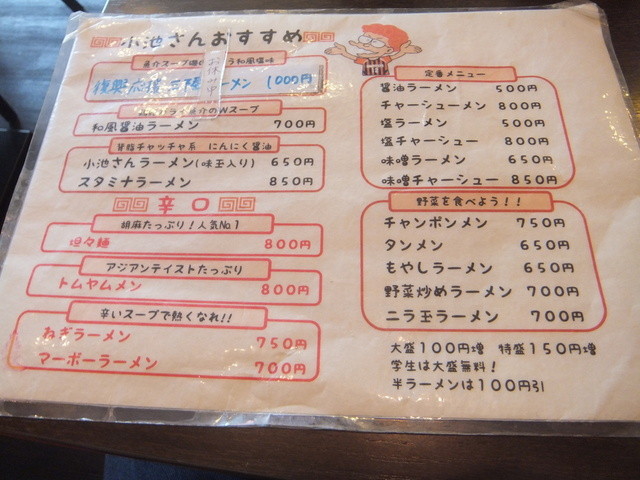 小池さんおすすめ
魚介スープ 和風塩味
お休み中
復興応援 三陸ラーメン 1000円
魚介のWスープ
和風醤油ラーメン 700円
背脂チャッチャ系 にんにく醤油
小池さんラーメン(味玉入り) 650円
スタミナラーメン 850円
辛口
胡麻たっぷり!人気No1
坦々麺 800円
アジアンテイストたっぷり
トムヤムメン 800円
辛いスープで熱くなれ!!
ねぎラーメン 750円
マーボーラーメン 700円
定番メニュー
醤油ラーメン 500円
チャーシューメン 800円
塩ラーメン 500円
塩チャーシュー 800円
味噌ラーメン 650円
味噌チャーシュー 850円
野菜を食べよう!!
チャンポンメン 750円
タンメン 650円
もやしラーメン 650円
野菜炒めラーメン 700円
ニラ玉ラーメン 700円
大盛100円増 特盛150円増
学生は大盛無料!
半ラーメンは100円引